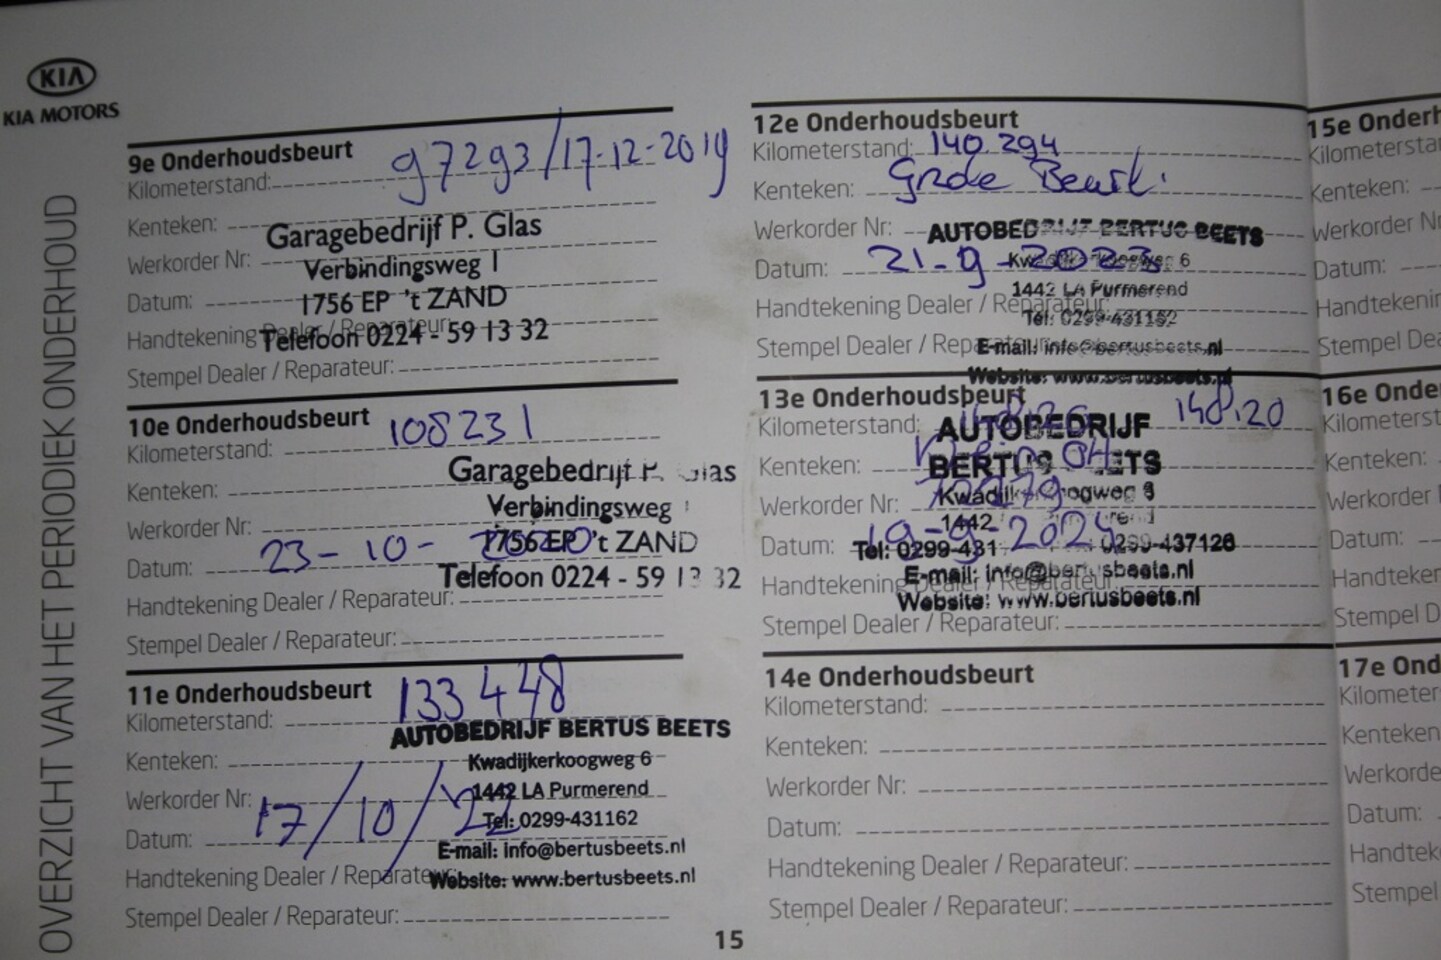 KIA
KIA MOTORS
OVERZICHT VAN HET PERIODIEK ONDERHOUD
9e Onderhoudsbeurt
Kilometerstand: 97293/17-12-2019
Kenteken:
Garagebedrijf P. Glas
Werkorder Nr:
Verbindingsweg 1
Datum:
1756 EP 't ZAND
Handtekening Dealer / Reparateur:
Telefoon 0224 - 59 13 32
Stempel Dealer / Reparateur:
10e Onderhoudsbeurt
Kilometerstand: 108231
Kenteken:
Garagebedrijf P. Glas
Werkorder Nr:
Verbindingsweg
1756 EP 't ZAND
Datum: 23-10-2020
Telefoon 0224 - 59 13 32
Handtekening Dealer / Reparateur:
Stempel Dealer / Reparateur:
11e Onderhoudsbeurt
Kilometerstand: 133448
AUTOBEDRIJF BERTUS BEETS
Kenteken:
Kwadijkerkoogweg 6
Werkorder Nr:
1442 LA Purmerend
Datum: 17/10/22
Tel: 0299-431162
E-mail: info@bertusbeets.nl
Handtekening Dealer / Reparateur:
Website: www.bertusbeets.nl
Stempel Dealer / Reparateur:
12e Onderhoudsbeurt
Kilometerstand: 140.294
Kenteken: Grote Beurt.
Werkorder Nr:
AUTOBEDRIJF BERTUS BEETS
Datum: 21-9-2023
6
1442 LA Purmerend
Handtekening Dealer / Reparateur:
Tel: 0299-431162
Stempel Dealer / Reparateur:
E-mail: info@bertusbeets.nl
Website: www.bertusbeets.nl
13e Onderhoudsbeurt
Kilometerstand: 148.120
AUTOBEDRIJF
Kenteken:
BERTUS BEETS
Werkorder Nr:
1442
Datum: 19-9-2024
Tel: 0299-431 0299-437126
E-mail: info@bertusbeets.nl
Handtekening Dealer / Reparateur:
Website: www.bertusbeets.nl
Stempel Dealer / Reparateur:
14e Onderhoudsbeurt
Kilometerstand:
Kenteken:
Werkorder Nr:
Datum:
Handtekening Dealer / Reparateur:
Stempel Dealer / Reparateur:
15e Onderh
Kilometersta
Kenteken:
Werkorder N
Datum:
Handtekenin
Stempel Dea
16e Onde
Kilometerst
Kenteken:
Werkorder
Datum:
Handteker
Stempel D
17e Ond
Kilometer
Kenteken:
Werkorde
Datum:
Handtek
Stempel
15